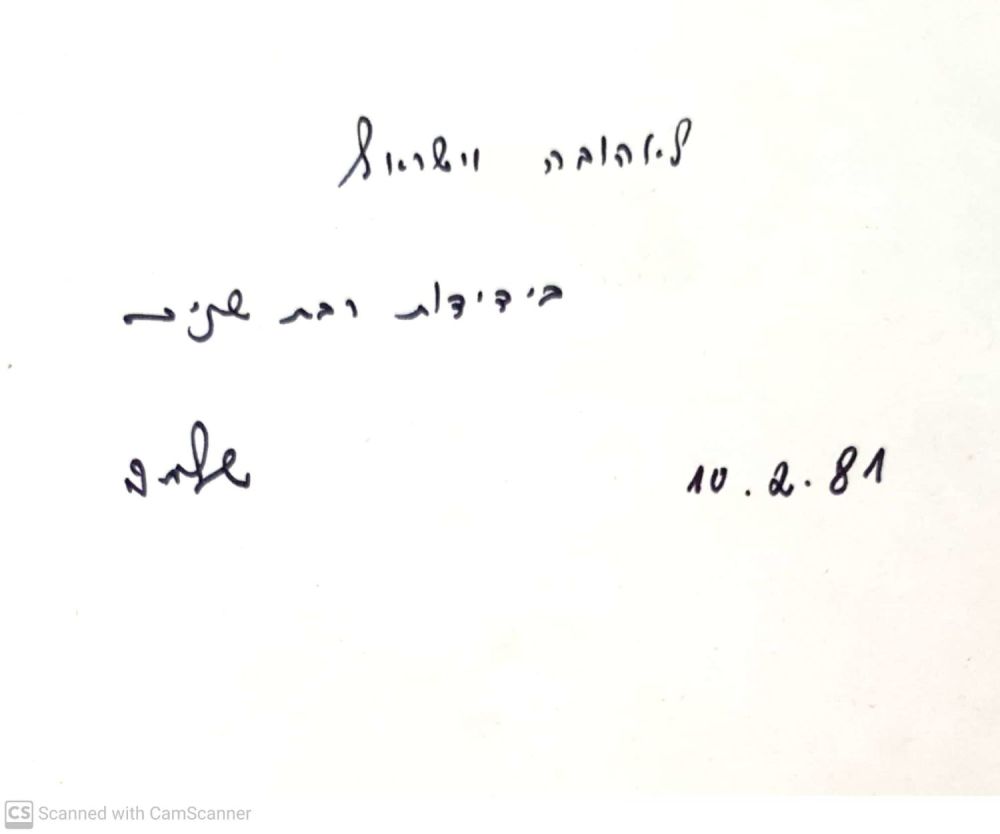 לאהובה וישראל
בידידות רבת שנים
שלמה
10.2.81
CS Scanned with CamScanner